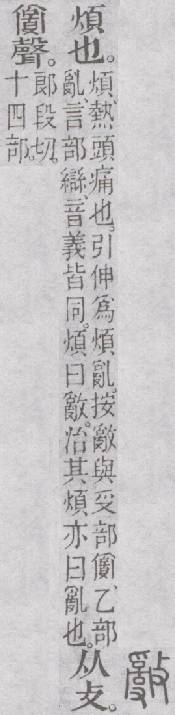 𢿢
煩也。
煩、熱頭痛也。引伸爲煩亂。按𢿢與𠬪部𤔔、乙部
亂、言部䜌、音義皆同。煩曰𢿢。治其煩亦曰亂也。
从攴。
𤔔聲。
郎段切。
十四部。